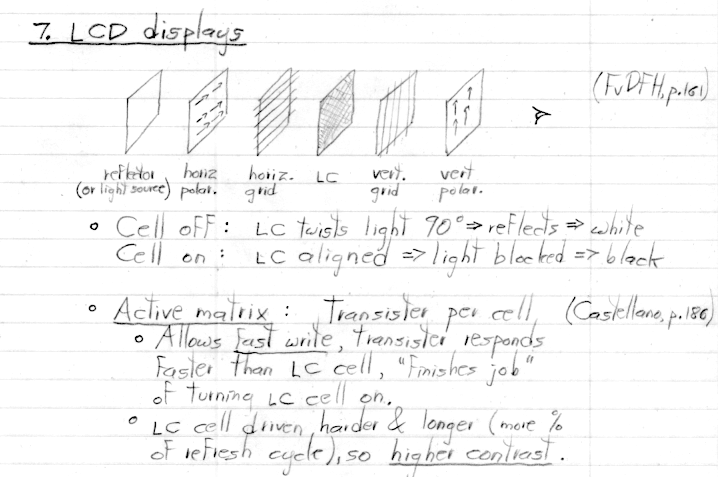 7. LCD displays
(FvDFH, p.161)
reflector horiz horiz. LC vert. vert
(or light source) polar. grid grid polar.
• Cell off: LC twists light 90° ⇒ reflects ⇒ white
Cell on: LC aligned ⇒ light blocked ⇒ black
• Active matrix: Transister per cell (Castellano, p.186)
• Allows fast write, transister responds
faster than LC cell, "finishes job"
of turning LC cell on.
• LC cell driven harder & longer (more %
of refresh cycle), so higher contrast.